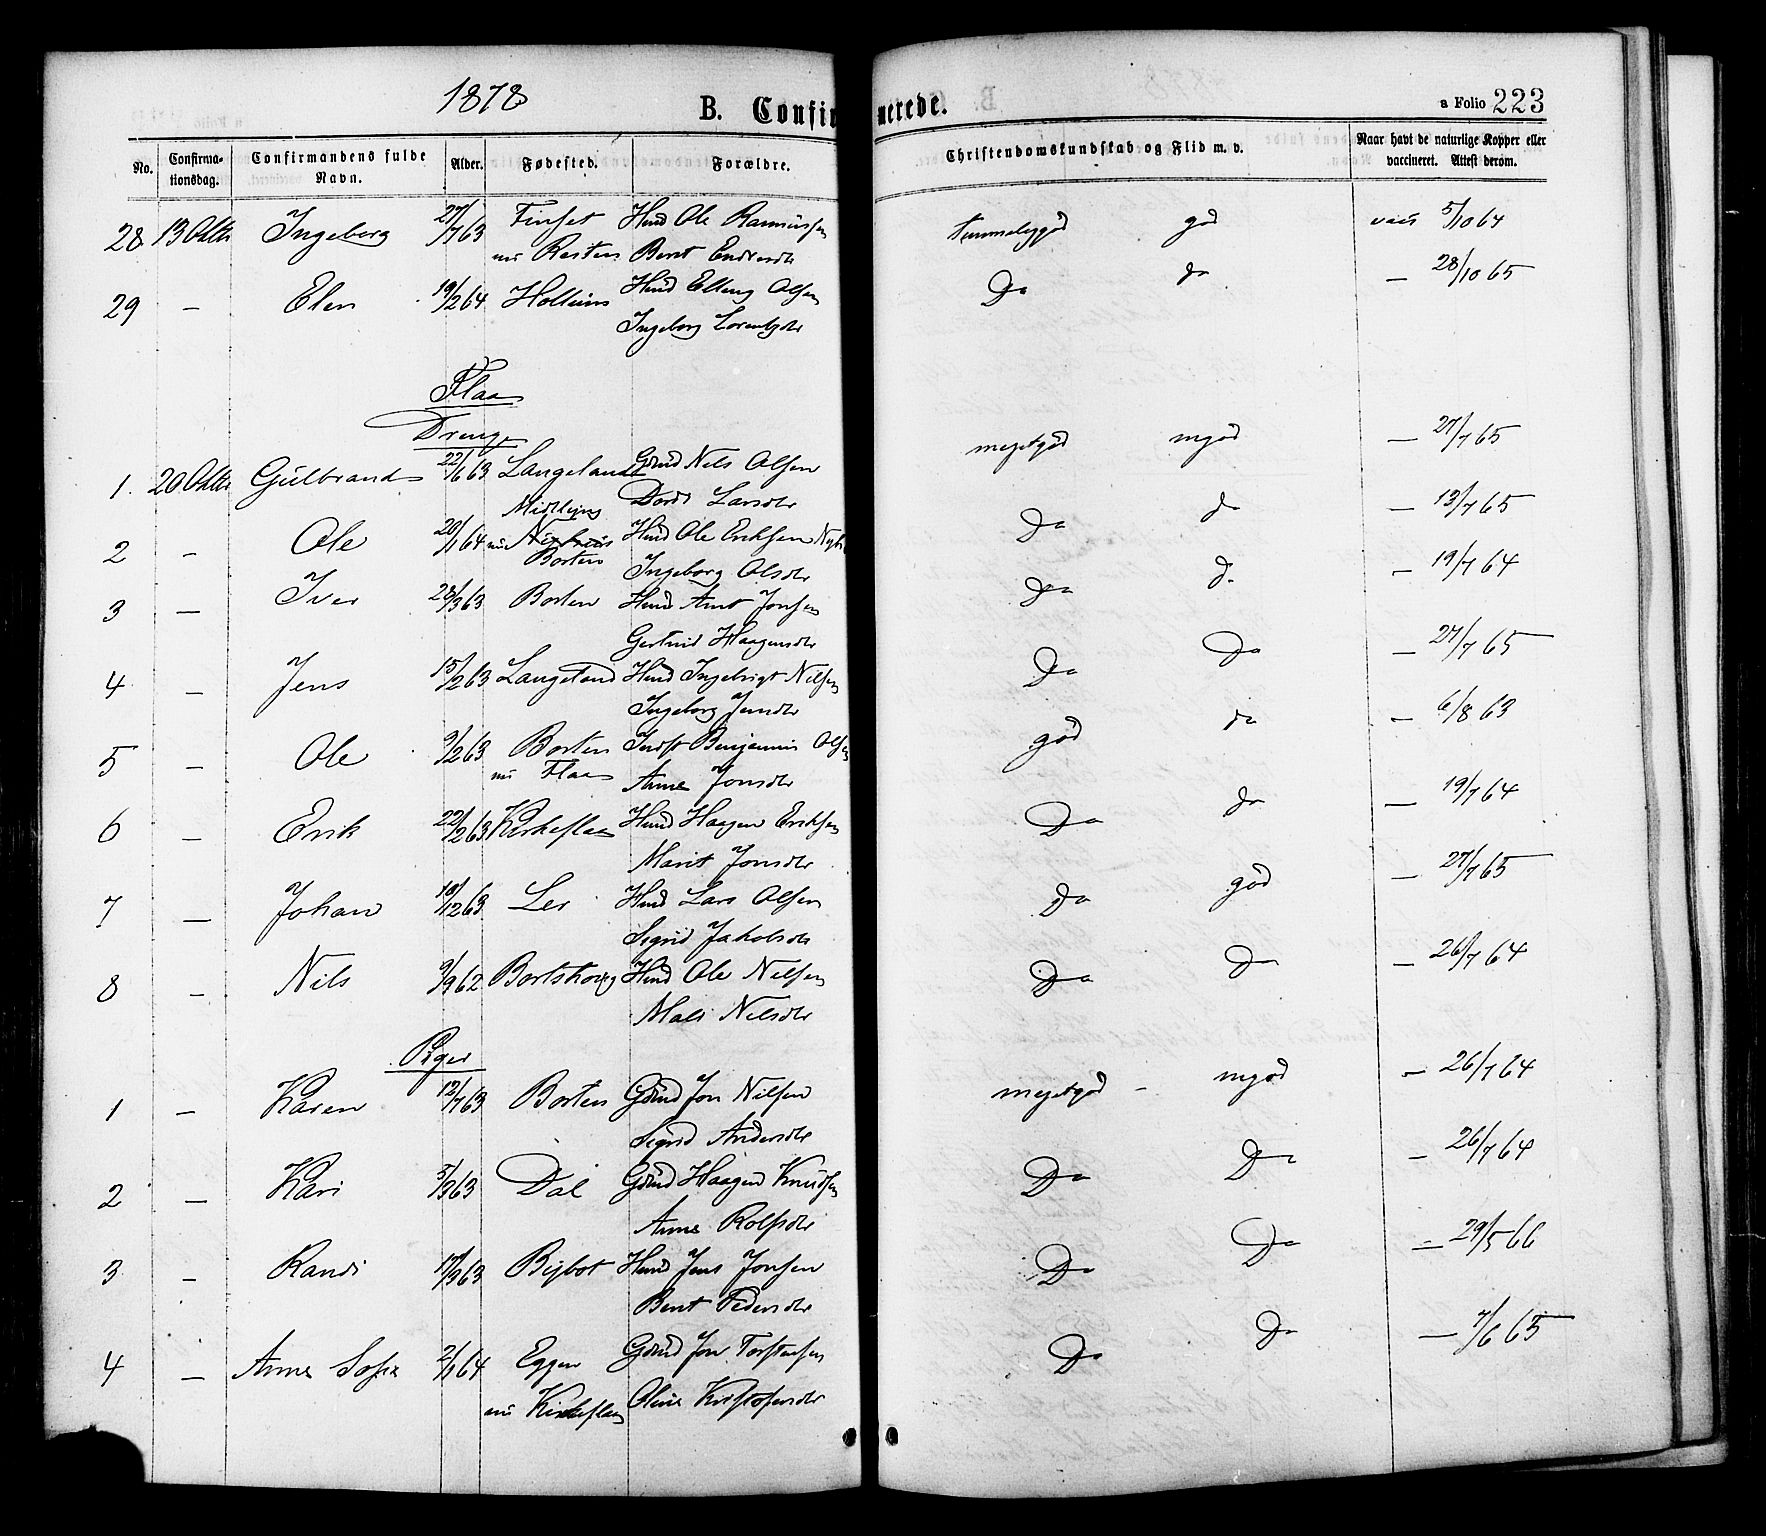 1878
B. Confirmerede.
a Folio 223
No. Confirmationsdag. Confirmandens fulde Navn. Alder. Fødested. Forældre. Christendomskundskab og Flid m. v. Naar havt de naturlige Kopper eller vaccineret. Attest derom.
28 13 Oktbr Ingeborg 27/7 63 Finset Hmd Ole Rasmussen temmeliggod god vacc 5/10 64
nu Rosten Beret Endresdtr
29 – Elen 19/2 64 Holteims Hmd Elling Olsen Do do – 28/10 65
Ingeborg Lorentzdtr
Flaa
Drenge
1. 20 Oktbr Gulbrand 22/6 63 Langeland Gdmd Nils Olsen megetgod mgod – 27/7 65
Dordi Larsdtr
2 – Ole 20/1 64 Midtlyng Hmd Ole Eriksen Do do – 13/7 65
nu Borten Ingeborg Olsdtr
3 – Iver 28/3 63 Borten Hmd Arnt Jonsen Do do – 19/7 64
Gertrud Haagensdtr
4 – Jens 15/2 63 Langeland Hmd Ingebrigt Nilsen Do Do – 27/7 65
Ingeborg Jensdtr
5 – Ole 9/2 63 Borten Indst Benjamin Olsen god do – 6/8 63
nu Flaa Anne Jonsdtr
6 – Erik 22/2 63 Kirkeflaa Hmd Haagen Eriksen Do do – 19/7 64
Marit Jonsdtr
7 – Johan 10/12 63 Ler Hmd Lars Olsen Do god – 27/7 65
Sigrid Jakobsdtr
8 – Nils 9/9 62 Bortskoug Hmd Ole Nilsen Do Do – 26/7 64
Mali Nilsdtr
Piger
1 – Karen 12/7 63 Borten Gdmd Jon Nilsen megetgod – mgod – 26/7 64
Sigrid Andersdtr
2 – Kari 5/9 63 Dal Gdmd Haagen Knudsen Do Do – 26/7 64
Anne Rolfsdtr
3 – Randi 17/9 63 Bigbot Hmd Jens Jonsen Do Do – 29/5 66
Beret Pedersdtr
4 – Anne Sofie 2/1 64 Eggen Gdmd Jon Torstensen Do Do – 7/6 65
nu Kirkeflaa Oline Kristofersdtr